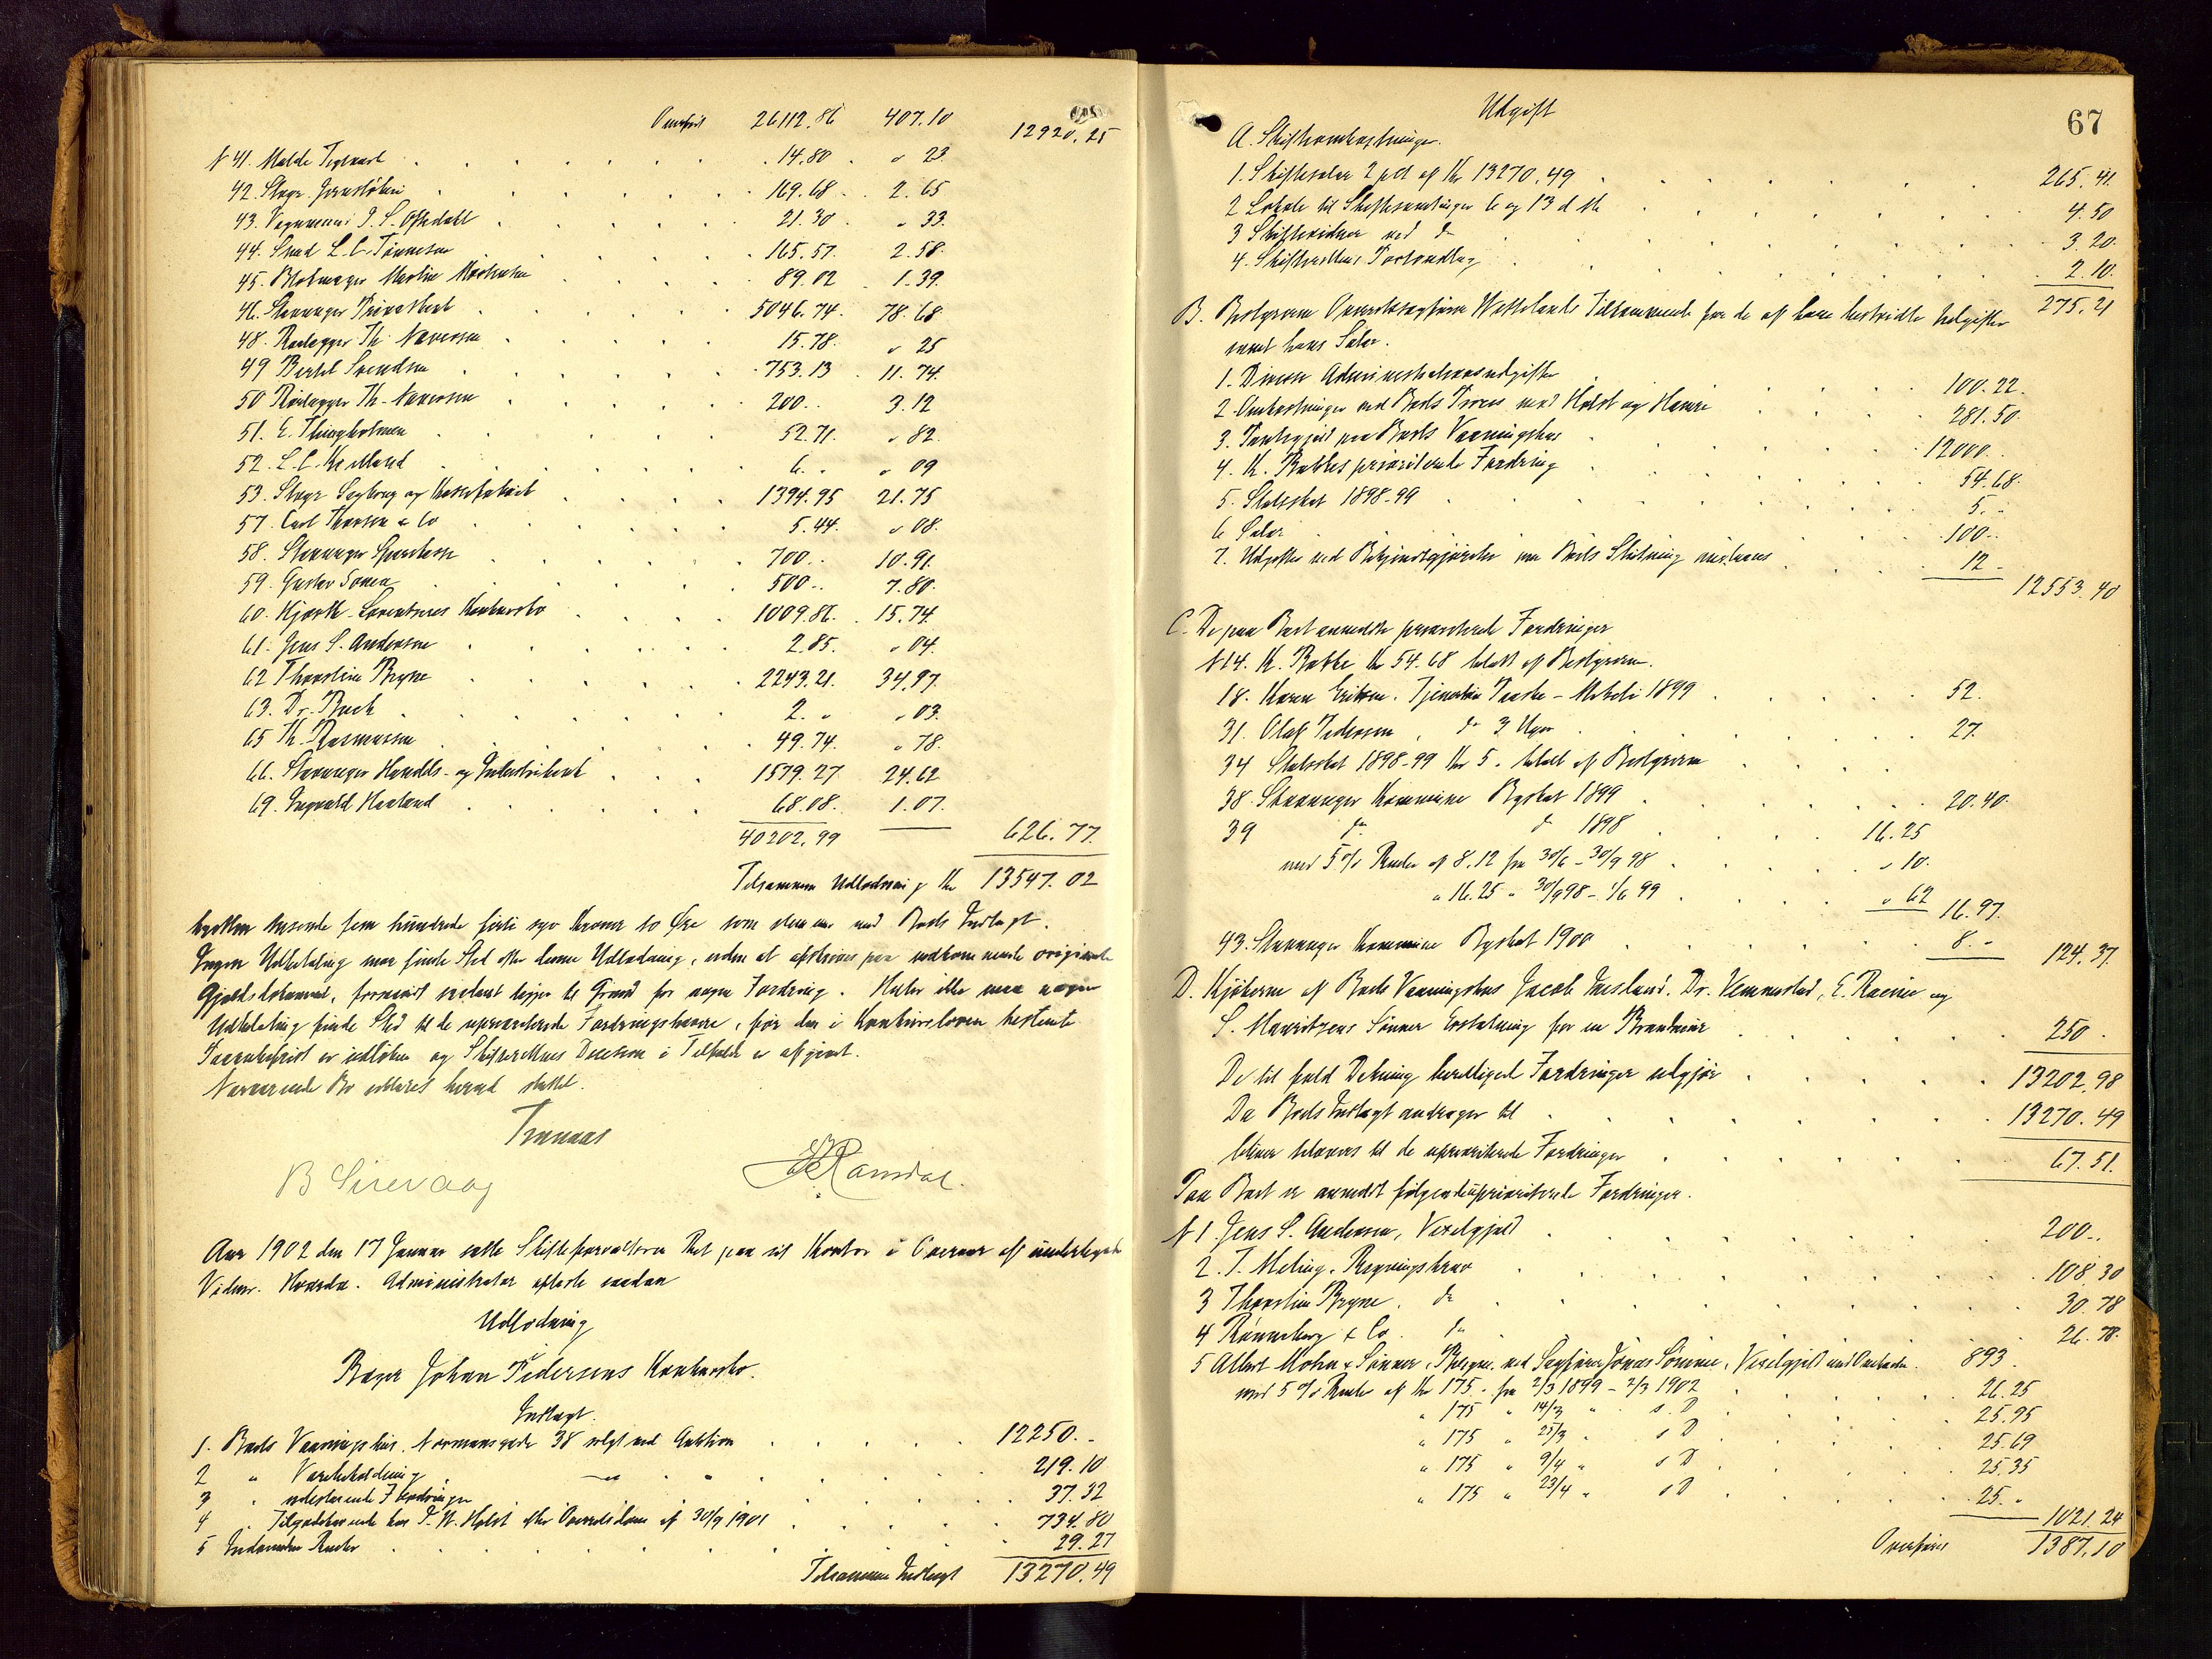 Overført 26112.86 407.10 12920.25
N 41. Malde Teglværk 14.80 " 23
42. Stvgr. Jernstøberi 169.68 2.65
43. Vognmand J. S. Oftedahl 21.30 " 33.
44. Smed L. C. Tønnesen 165.57 2.58
45. Blokmager Martin Mortensen 89.02 1.39.
46. Stavanger Privatbank 5046.74 78.68
48. Rørlægger Th. Naversen 15.78 " 25
49 Bertel Svendsen 753.13 11.74.
50 Rørlægger Th. Naversen 200.. 3.12
51. E. Thingholmen 52.71. " 82.
52. L. C. Kielland 6. " " 09
53. Stvgr Sagbrug og Kassefabrik 1394.95 21.75
57. Carl Thorsen & Co 5.44. " 08.
58. Stavanger Sparekasse 700.. 10.91.
59. Gustav Sømen 500.. 7.80.
60. Hjorth-Lorentzens Konkursbo 1009.86. 15.74
61. Jens S. Andersen 2.85. " 04.
62 Thorstein Bryne 2243.21. 34.97.
63. Dr. Buch 2. " " 03.
65 Th. Rasmussen 49.74. " 78.
66. Stavanger Handels- og Industribank 1579.27 24.62
69. Ingvald Haaland 68.08. 1.07.
40202.99 626.77.
Tilsammen Udlodning Kr 13547.02
tretten tusende fem hundrede firti syv Kroner to Øre som stemmer med Boets Indtægt.
Ingen Udbetaling maa finde Sted efter denne Udlodning, uden at afskrives paa vedkommende originale
Gjældsdokument, forsaavidt saadant ligger til Grund for nogen Fordring. Heller ikke maa nogen
Udbetaling finde Sted til de uprioriterede Fordringshavere, før den i Konkursloven bestemte
Paaankefrist er udløben og Skifterettens Decision i Tilfælde er afgjort.
Nærværende Bo erklæres herved sluttet.
B Sirevaag
Ramdal.
Aar 1902 den 17 Januar satte Skifteforvalteren Ret paa sit Kontor i Overvær af undertegnede
Vidner. Hvorda. Administrator afsluttede saadan
Udlodning
i
Bager Johan Pedersens Konkursbo.
Indtægt.
1. Boets Vaaningshus Normansgade 38 solgt ved Auktion 12250. -
2 " Varebeholdning 219.10
3 " udestaaende Fordringer 37.32
4 " Tilgodehavende hos P. W. Holst efter Overretsdom af 30/9 1901 734.80
5 Indvundne Renter 29.27
Tilsammen Indtægt 13270.49
67
Udgift
A. Skifteomkostninger.
1. Skiftesalær 2 pct af Kr 13270.49 265.41.
2 Lokale til Skiftesamlinger 6 og 13 d M 4.50
3 Skiftevidner ved do 3.20.
4. Skifterettens Forhandling 2.10.
275.21
B. Bestyreren Overretssagfører Wettelands Tilkommende for de af ham bestridte Udgifter
samt hans Salær.
1. Diverse Administrationsudgifter 100.22.
2. Omkostninger ved Boets Proces mod Holst og Hamre 281.50.
3. Panthegjæld paa Boets Vaaningshus 12000..
4. K. Bakkes prioriterede Fordring 54.68.
5. Statsskat 1898-99 5. -
6 Salær 100..
7. Udgifter ved Bekjendtgjørelse om Boets Slutning m.v. 12 -
12553.40
C. De paa Boet anmeldte prioriterede Fordringer
N 14. K. Bakke Kr 54.68 betalt af Bestyreren.
18. Karen Eriksen. Tjenerløn Paaske-Mikkeli 1899 52.
31. Olaf Pedersen, do 3 Uger 27.
34 Statsskat 1898-99 Kr 5. betalt af Bestyreren
38. Stavanger Kommune Byskat 1899 20.40.
39 do do 1898 16.25
med 5 % Rente af 8.12 fra 30/6 - 30/9 98 " 10.
" 16.25 " 30/9 98 - 1/6 99 " 62
16.97.
43. Stavanger Kommune Byskat 1900 8. -
124.37.
D. Kjøberne af Boets Vaaningshus Jacob Snesland. Dr. Vennestad, E. Racine og
S. Mauritzens Sønner Erstatning for en Brandmur 250.
De til fuld Dækning berettigede Fordringer udgjør 13202.98
Da Boets Indtægt andrager til 13270.49
bliver tilovers til de uprioriterede Fordringer 67.51.
Paa Boet er anmeldt følgende uprioriterede Fordringer.
N 1. Jens S. Andersen, Vexelgjæld 200..
2. T. Meling. Regningskrav 108.30
3 Thorstein Bryne. do 30.78
4 Rønneberg & Co. do 26.78.
5 Albert Mohn & Sønner, Bergen. ved Sagfører Jonas Sømme, Vexelgjæld med Omkostn. 893.
med 5 % Rente af Kr 175. fra 2/3 1899 - 2/3 1902 26.25
" 175 " 14/3 " s. D 25.95
" 175 " 25/3 " s D 25.69
" 175 " 9/4 " s D 25.35
" 175 " 23/4 " s D 25. "
1021.24
Overføres 1387.10